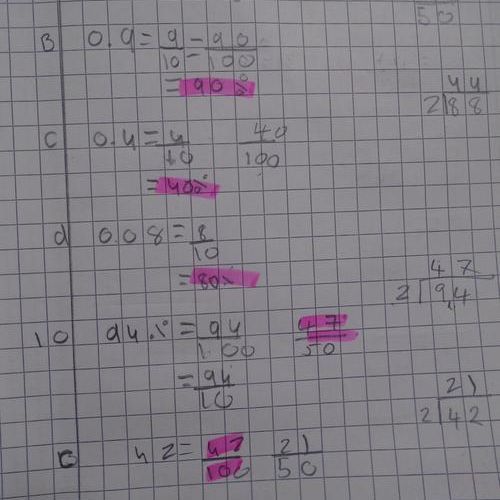 50
B 0.9 = 9/10 = 90/100
= 90%
44
2|88
c 0.4 = 4/10 40/100
= 40%
d 0.08 = 8/10
= 80%
47
2|94
10 94% = 94/100 47/50
= 94/10
21
2|42
c 42 = 42/100 21/50